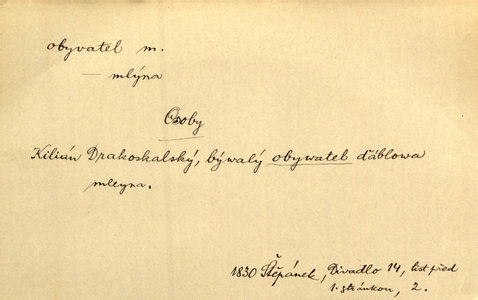 obyvatel m.
— mlýna
Osoby
Kilián Drakoskalský, býwalý obywatel ďáblowa
mleyna.
1830 Štěpánek, Divadlo 14, list před
1. stránkou, 2.